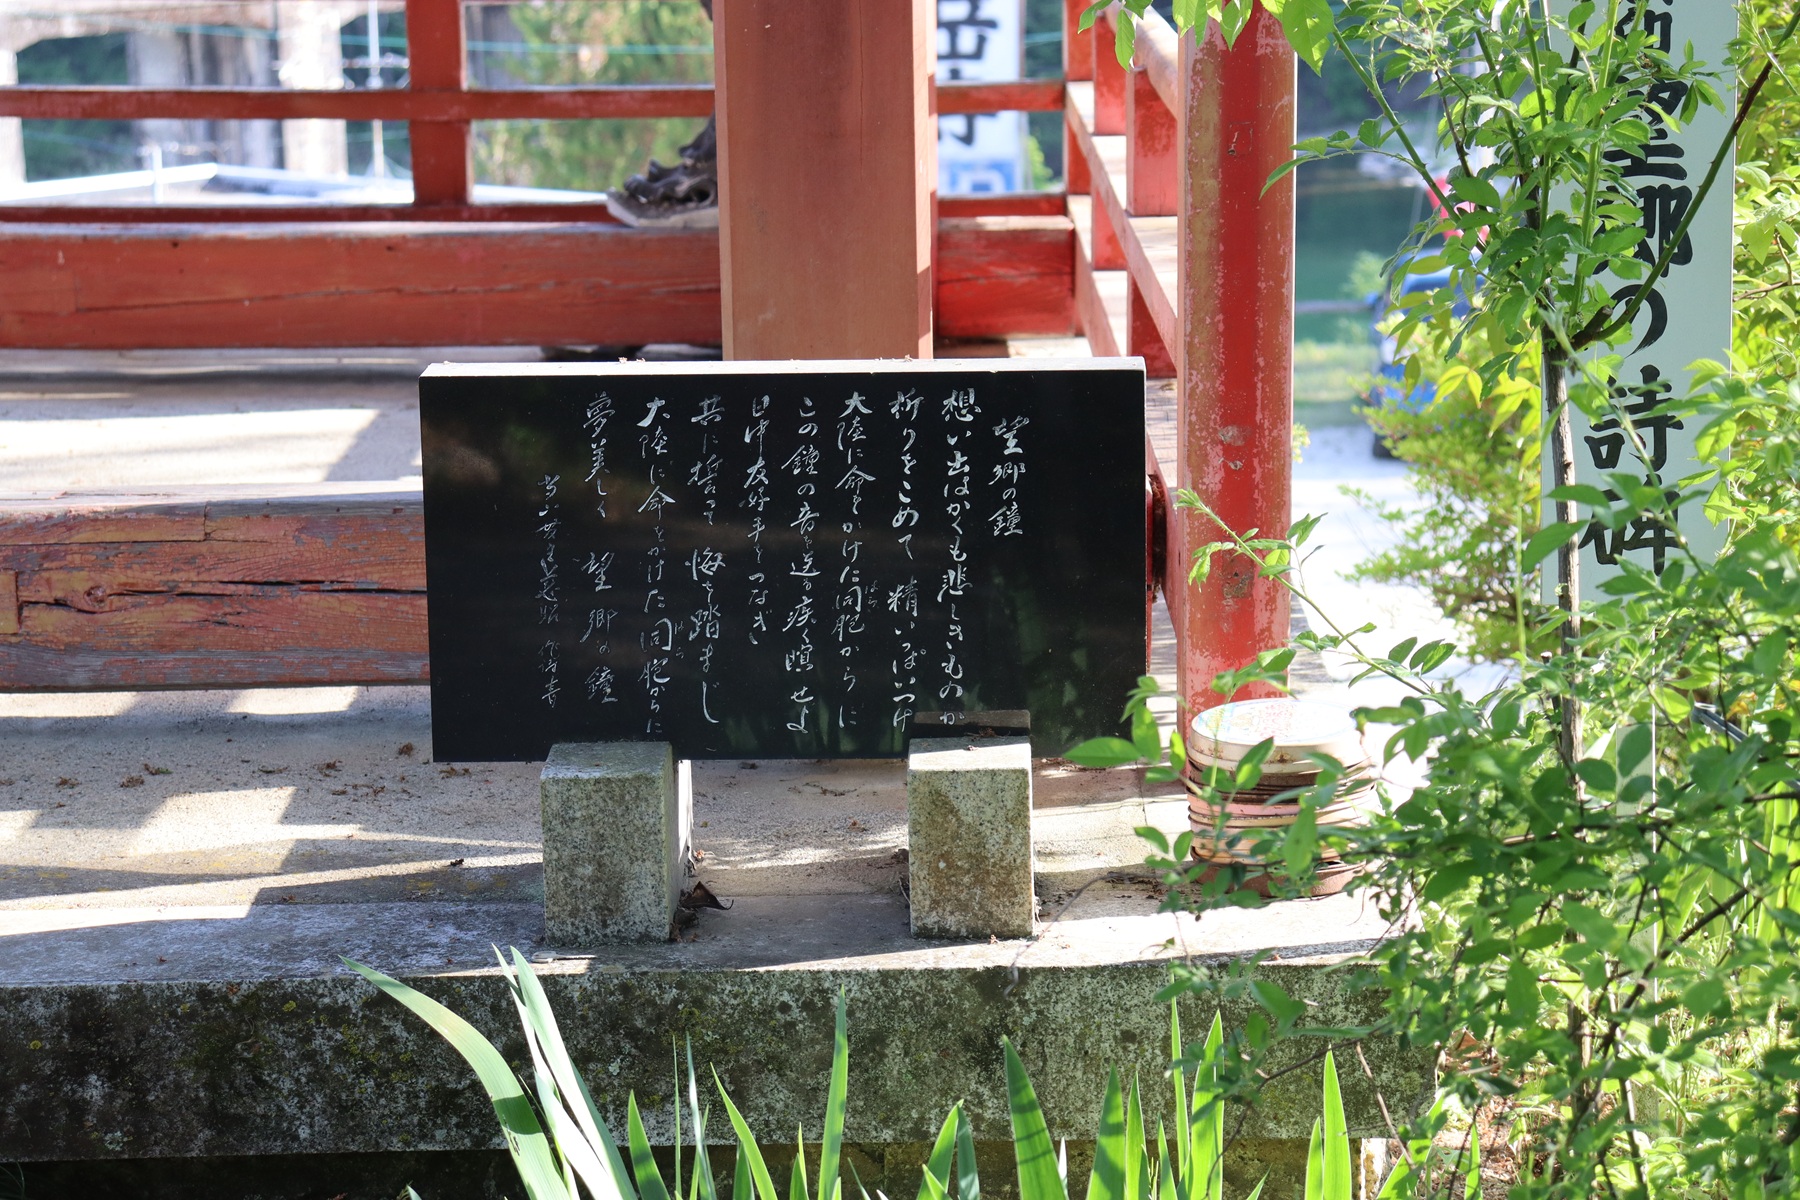 望郷の鐘
想い出はかくも悲しきものか
祈りをこめて 精いっぱいつけ
大陸に命をかけた同胞からに
はら
この鐘の音を送る疾く瞑せよ
日中友好手をつなぎ
共に誓って 悔を踏まじ
大陸に命をかけた同胞からに
はら
夢美しく 望郷の鐘
望郷の詩碑